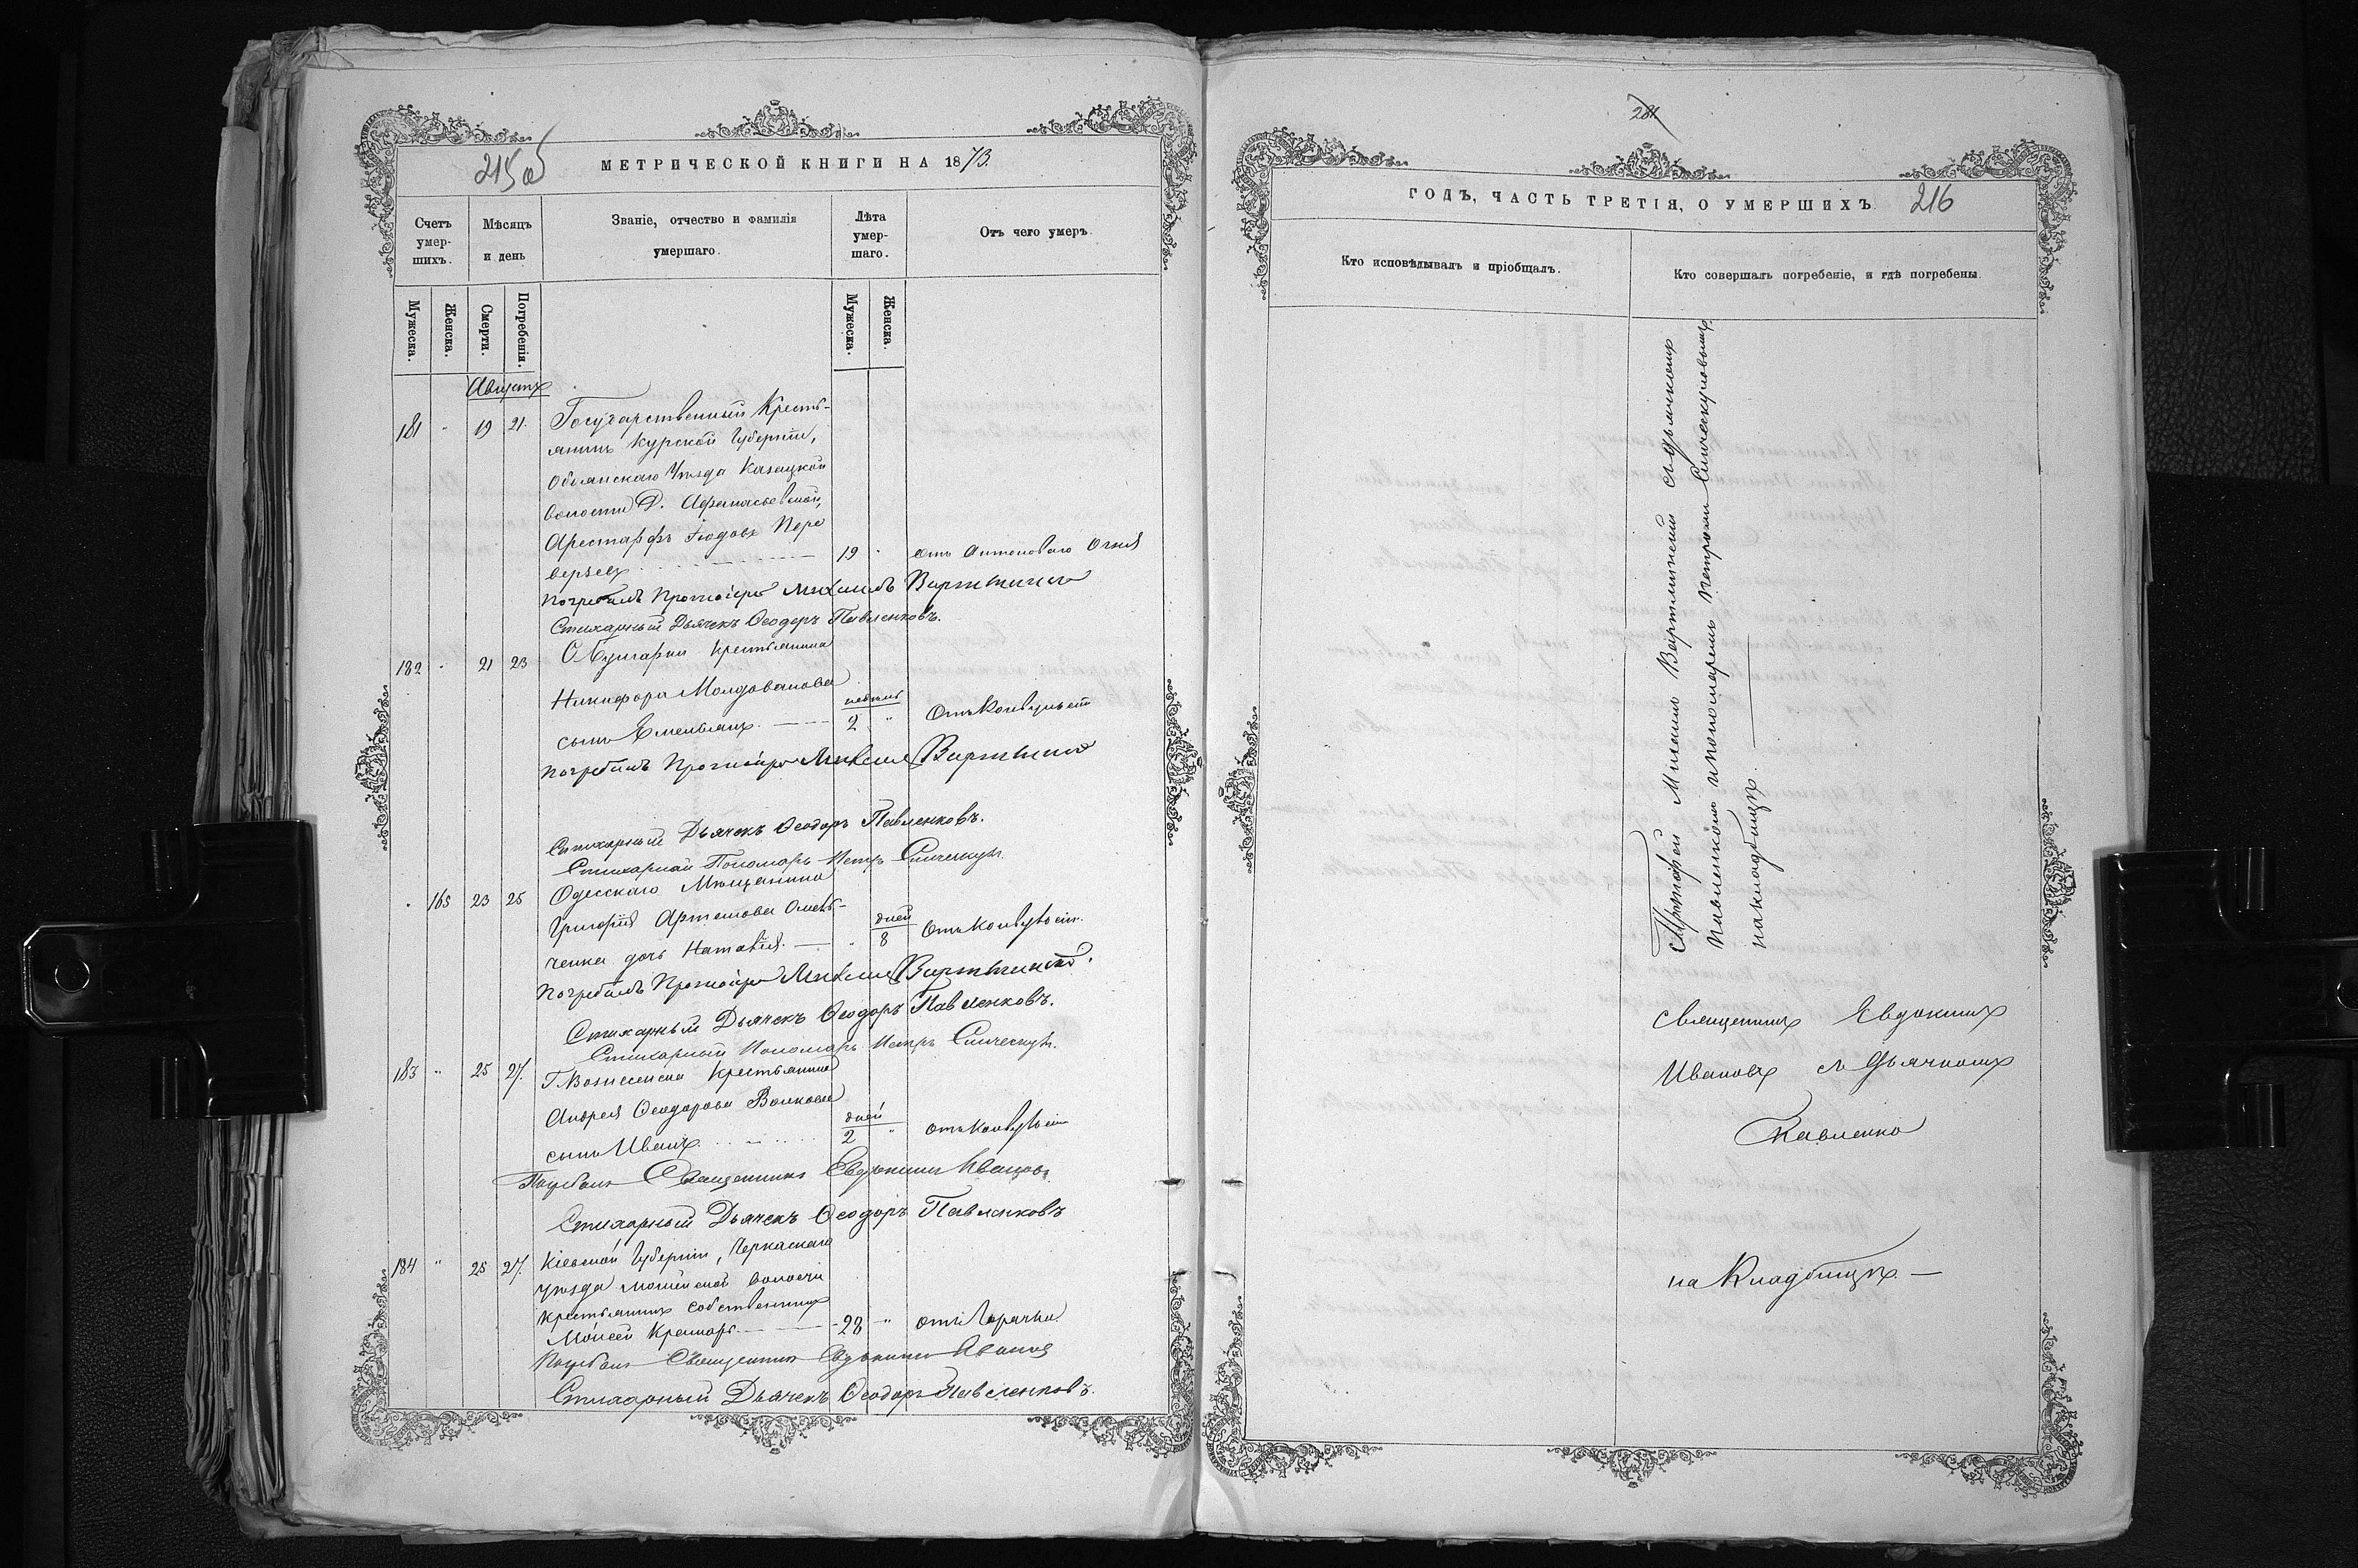 215 об
МЕТРИЧЕСКОЙ КНИГИ НА 1873.
Счетъ умер-шихъ.
Мѣсяцъ и день
Званіе, отчество и фамилія умершаго.
Лѣта умер-шаго.
Отъ чего умеръ.
Мужеска.
Женска.
Смерти.
Погребенія.
Мужеска.
Женска.
Августъ
181 " 19 21. Государственный Кресть-
янинъ Курской Губерніи,
Обоянскаго Уѣзда Казацкой
волости Д. Афанасьевской,
Арестарфъ Ѳеодовъ Пере
верзевъ 19 " отъ Антонова Огня
Погребалъ Протоіерей Михаилъ Вартминскій
Стихарный Дьячекъ Ѳеодоръ Павленковъ.
182 " 21 23 Крестьянина
Никифора Молдованова
сынъ Емельянъ недѣль 2 " Отъ Конвульсій
Погребалъ Протоіерей Михаилъ Вартминскій
Стихарный Дьячекъ Ѳеодоръ Павленковъ.
Стихарный Пономарь Петръ Синческулъ.
" 165 23 25 Одесскаго Мѣщанина
Григорія Артемова Омель-
ченка дочь Наталія. " дней 8 Отъ Конвульсій.
Погребалъ Протоіерей Михаилъ Вартминскій.
Стихарный Дьячекъ Ѳеодоръ Павленковъ.
Стихарный Пономарь Петръ Синческулъ.
183 " 25 27. Г. Вознесенска Крестьянина
Андрея Ѳеодорова Волкова
сынъ Иванъ. дней 2 " отъ Конвульсій
Погребалъ Священникъ Евдокимъ Ивановъ
Стихарный Дьячекъ Ѳеодоръ Павленковъ
184 " 25 27. Кіевской Губерніи, Черкаскаго
Уѣзда волости
Крестьянинъ собственникъ
Моисей 28 " отъ Горячки
Погребалъ Священникъ Евдокимъ Ивановъ
Стихарный Дьячекъ Ѳеодоръ Павленковъ.
281
ГОДЪ, ЧАСТЬ ТРЕТІЯ, О УМЕРШИХЪ. 216
Кто исповѣдывалъ и пріобщалъ.
Кто совершалъ погребеніе, и гдѣ погребены.
Протоіерей Михаилъ Вартминскій съ дьячкомъ
Павленкомъ и пономаремъ Петромъ Синческуловымъ
на кладбищѣ.
Священникъ Евдокимъ
Ивановъ съ Дьячкомъ
Павленко
на Кладбищѣ.